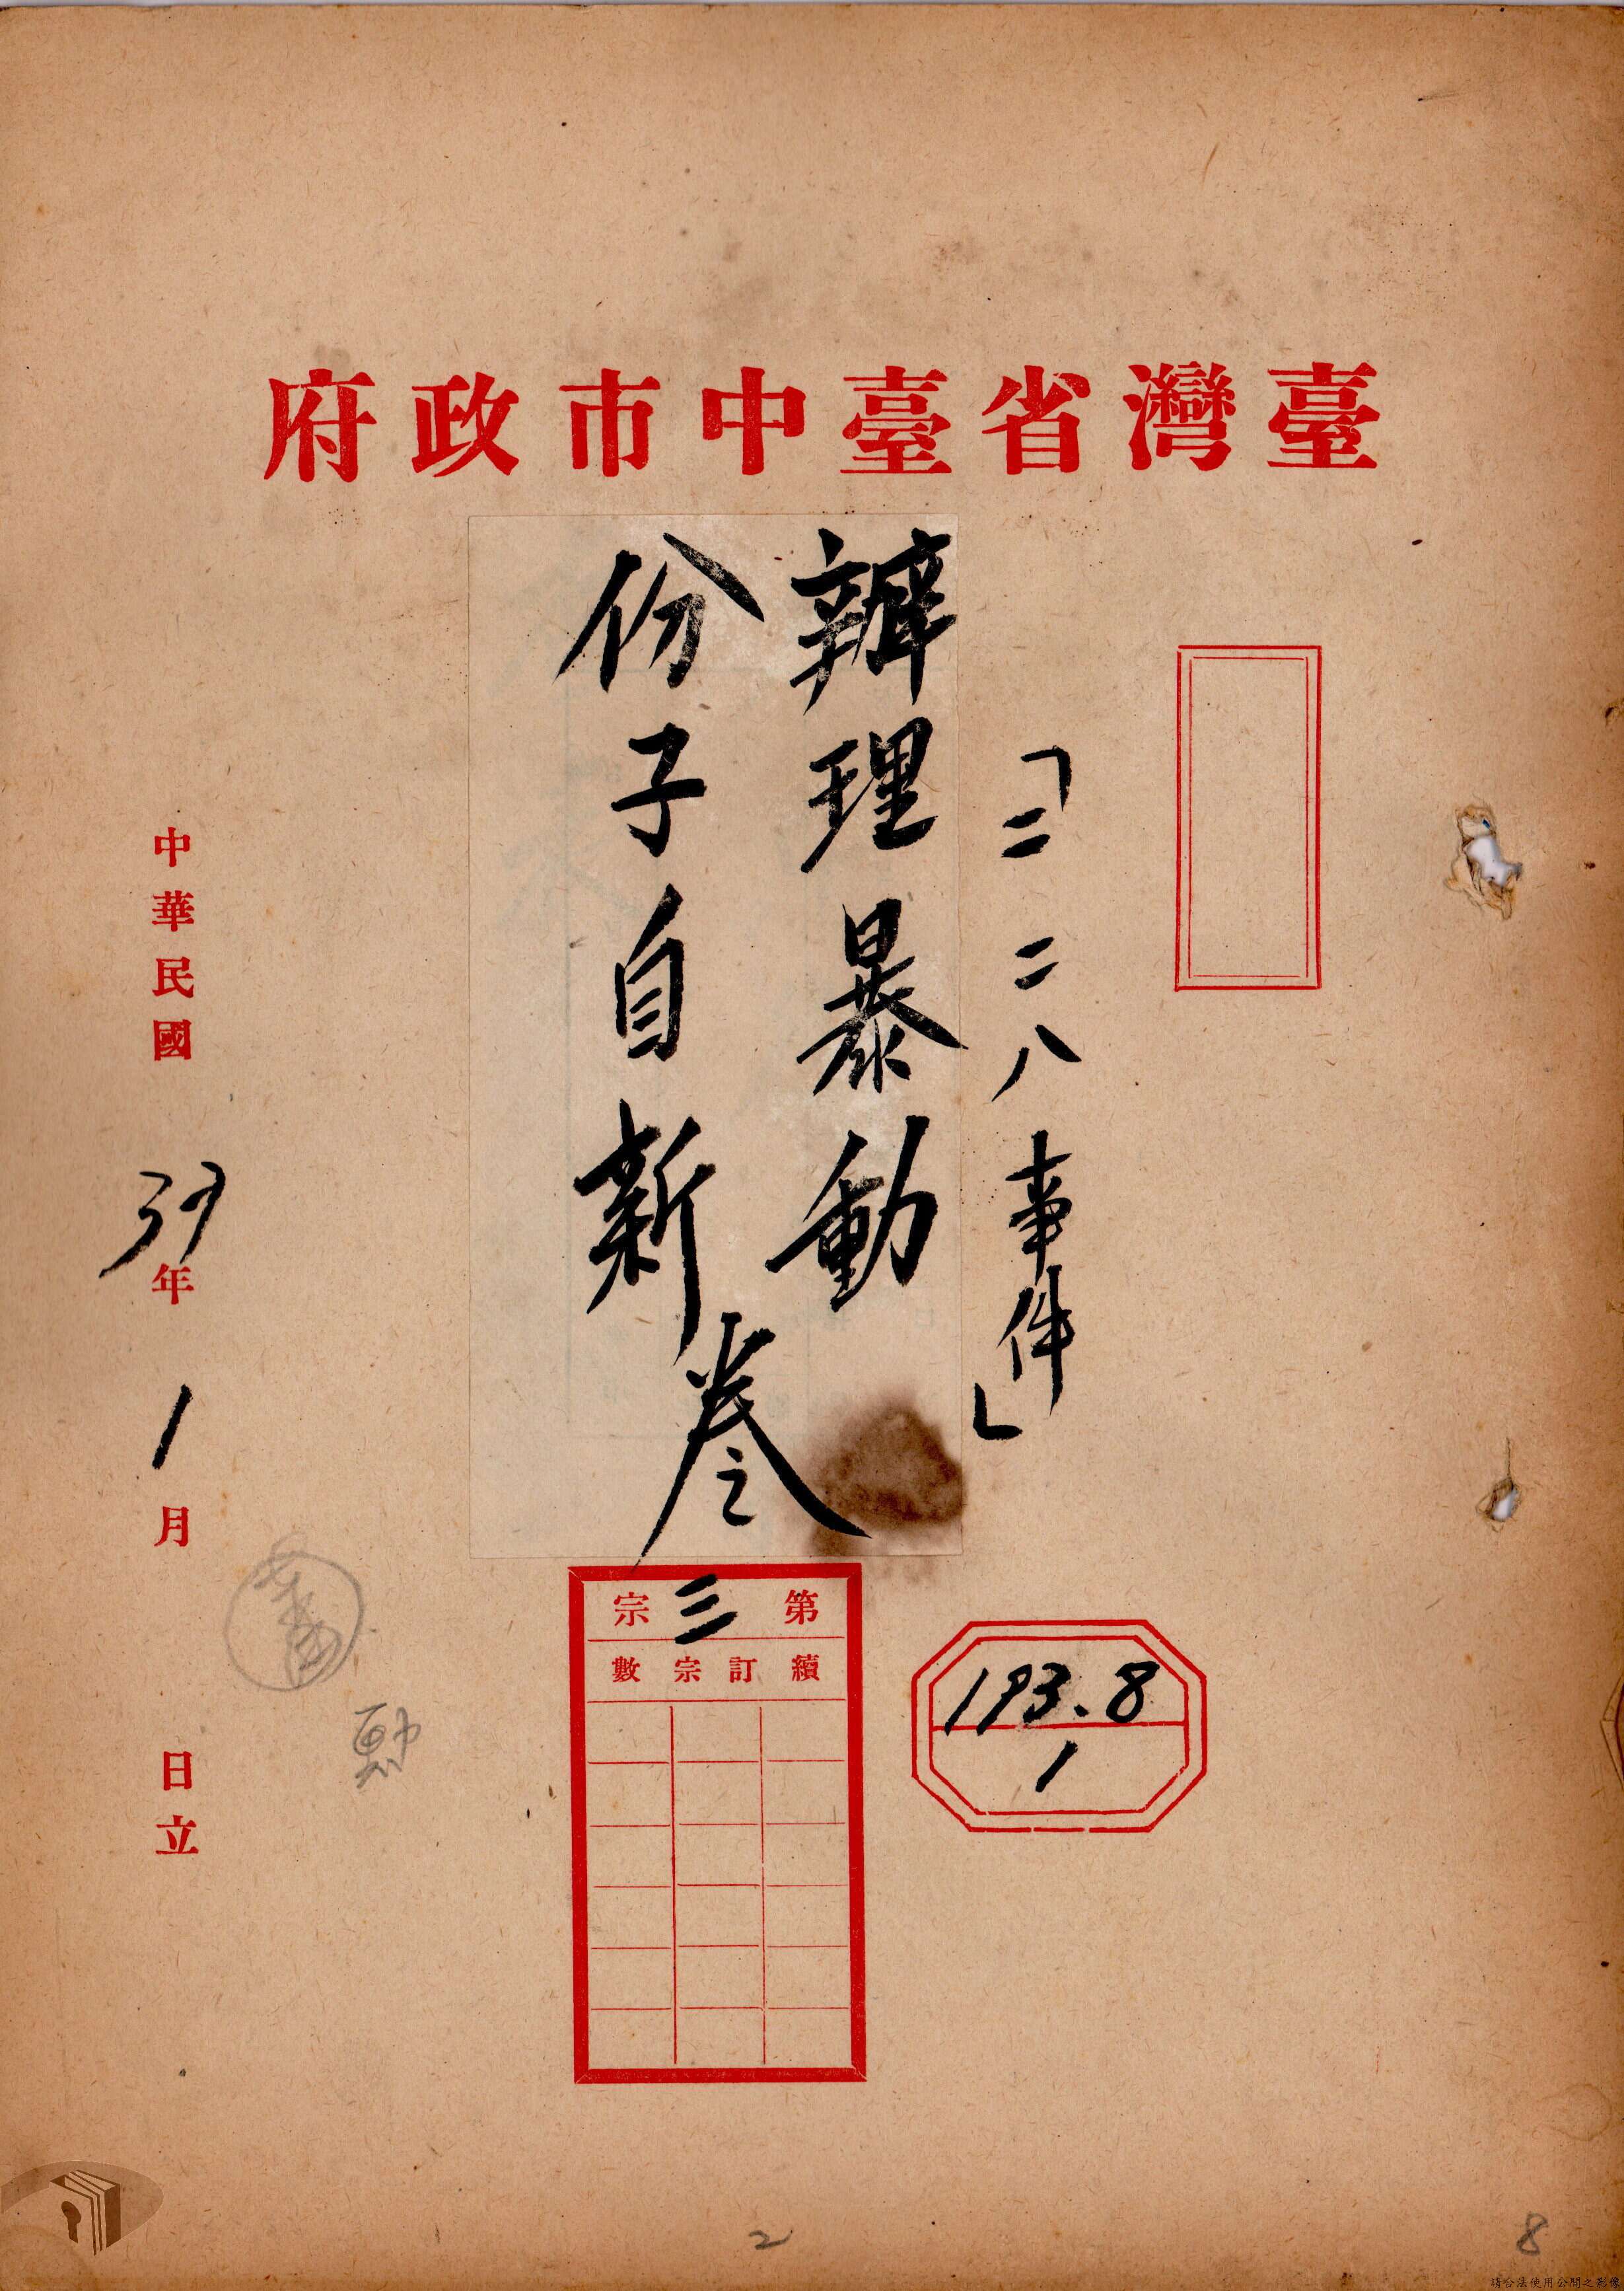 臺灣省臺中市政府
「二二八事件」
辦理暴動
份子自新
卷
第三宗
續訂宗數
193.8
1
中華民國39年1月 日立
2
8
請合法使用公開之影像